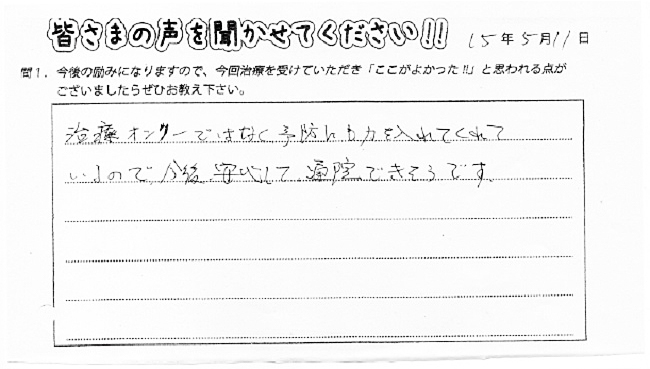 皆さまの声を聞かせてください!! 15年5月11日
問1．今後の励みになりますので、今回治療を受けていただき「ここがよかった!!」と思われる点が
ございましたらぜひお教え下さい。
治療オンリーではなく予防にも力を入れてくれて
いるので、今後、安心して、通院できそうです。